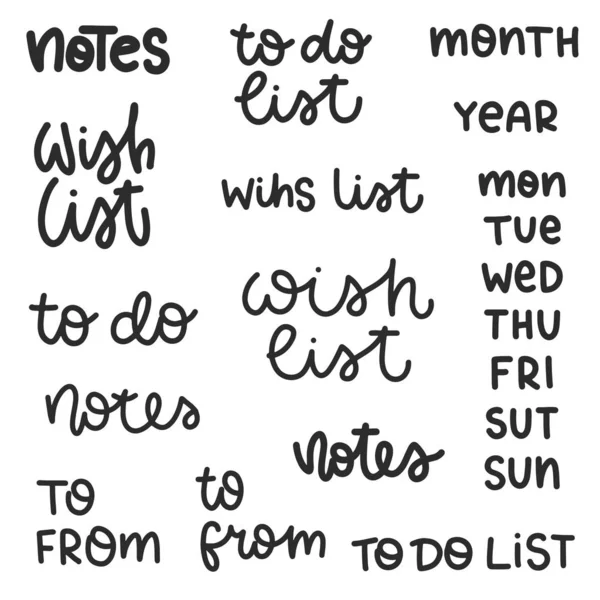 NOTES
to do
list
MONTH
YEAR
wish
list
wihs list
MON
TUE
WED
THU
FRI
SUT
SUN
to do
wish
list
notes
notes
TO
FROM
to
from
TO DO LIST